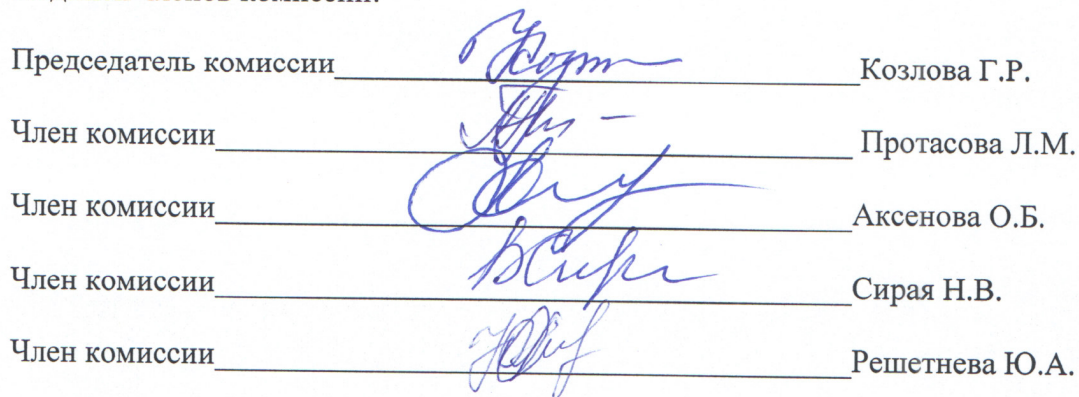 членов комиссии:
Председатель комиссии Козлова Г.Р.
Член комиссии Протасова Л.М.
Член комиссии Аксенова О.Б.
Член комиссии Сирая Н.В.
Член комиссии Решетнева Ю.А.